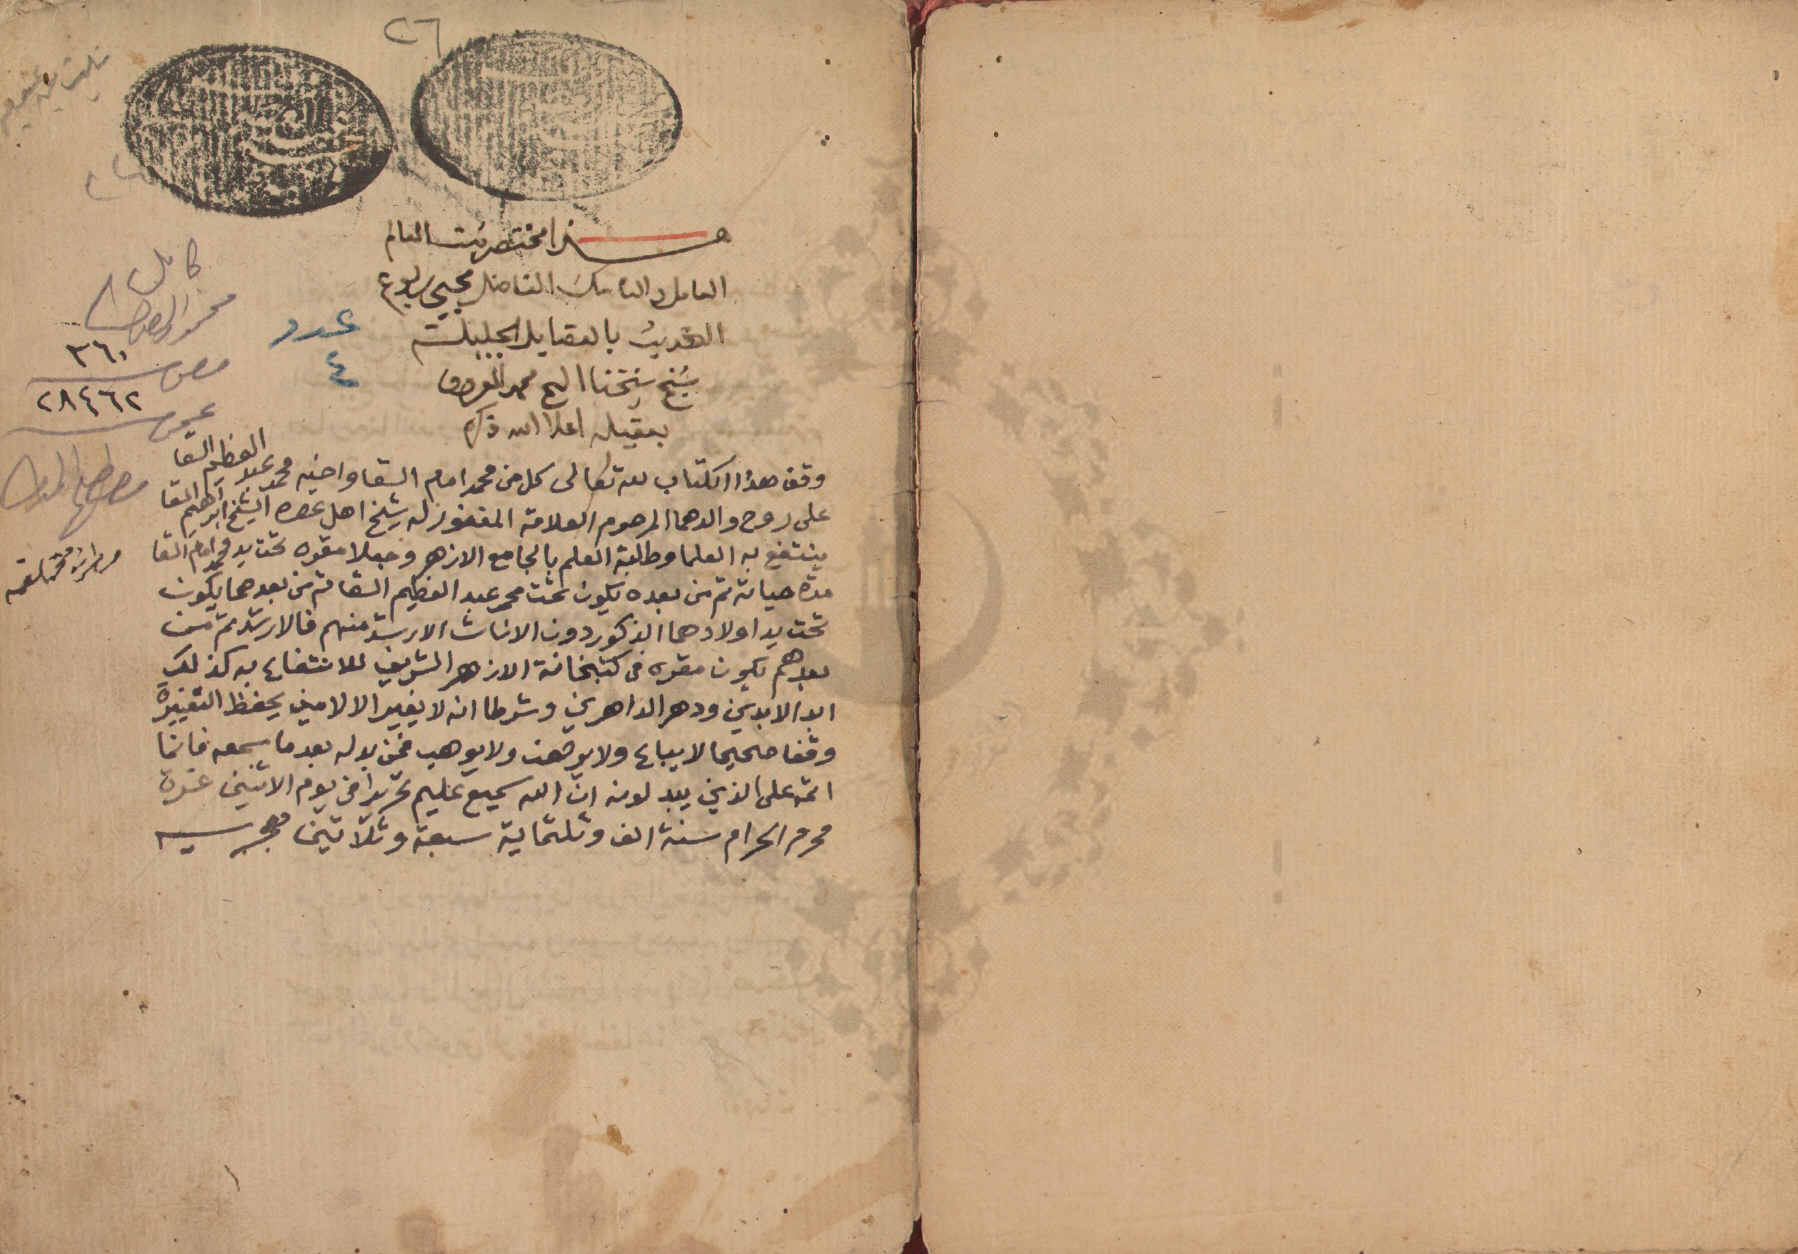 ٢٦
هذا مختصر ثبت العالم
العامل والناسك الفاضل محيي ربوع
الحديث بالفضايل الجليلة
شيخ شيخنا الشيخ محمد المعروف
بعقيله اعلا الله ذكره
عدد
٤
كامل
٣٦٠
خصوص
٢٨٤٦٢
عموم
مصطلح الحديث
وقف هذا الكتاب لله تعالى كل من محمد امام السقا واخيه محمد عبد العظيم السقا
على روح والدهما المرحوم العلامة المغفور له شيخ اهل عصره الشيخ ابراهيم السقا
ينتفع به العلما وطلبة العلم بالجامع الازهر وجعلا مقره تحت يد محمد امام السقا
مدة حياته ثم من بعده يكون تحت محمد عبد العظيم السقا ثم من بعدهما يكون
تحت يد اولادهما الذكور دون الاناث الارشد منهم فالارشد ثم من
بعدهم يكون مقره في كتبخانة الازهر الشريف للانتفاع به كذلك
ابد الابدين ودهر الداهرين وشرطا انه لا يغير الا لامين يحفظ التغييرة
وقفا صحيحا لا يباع ولا يرهن ولا يوهب فمن بدله بعد ما سمعه فانما
اثمه على الذين يبدلونه ان الله سميع عليم تحريرا في يوم الاثنين غرة
محرم الحرام سنة الف وثلثماية سبعة وثلاثين هجريه